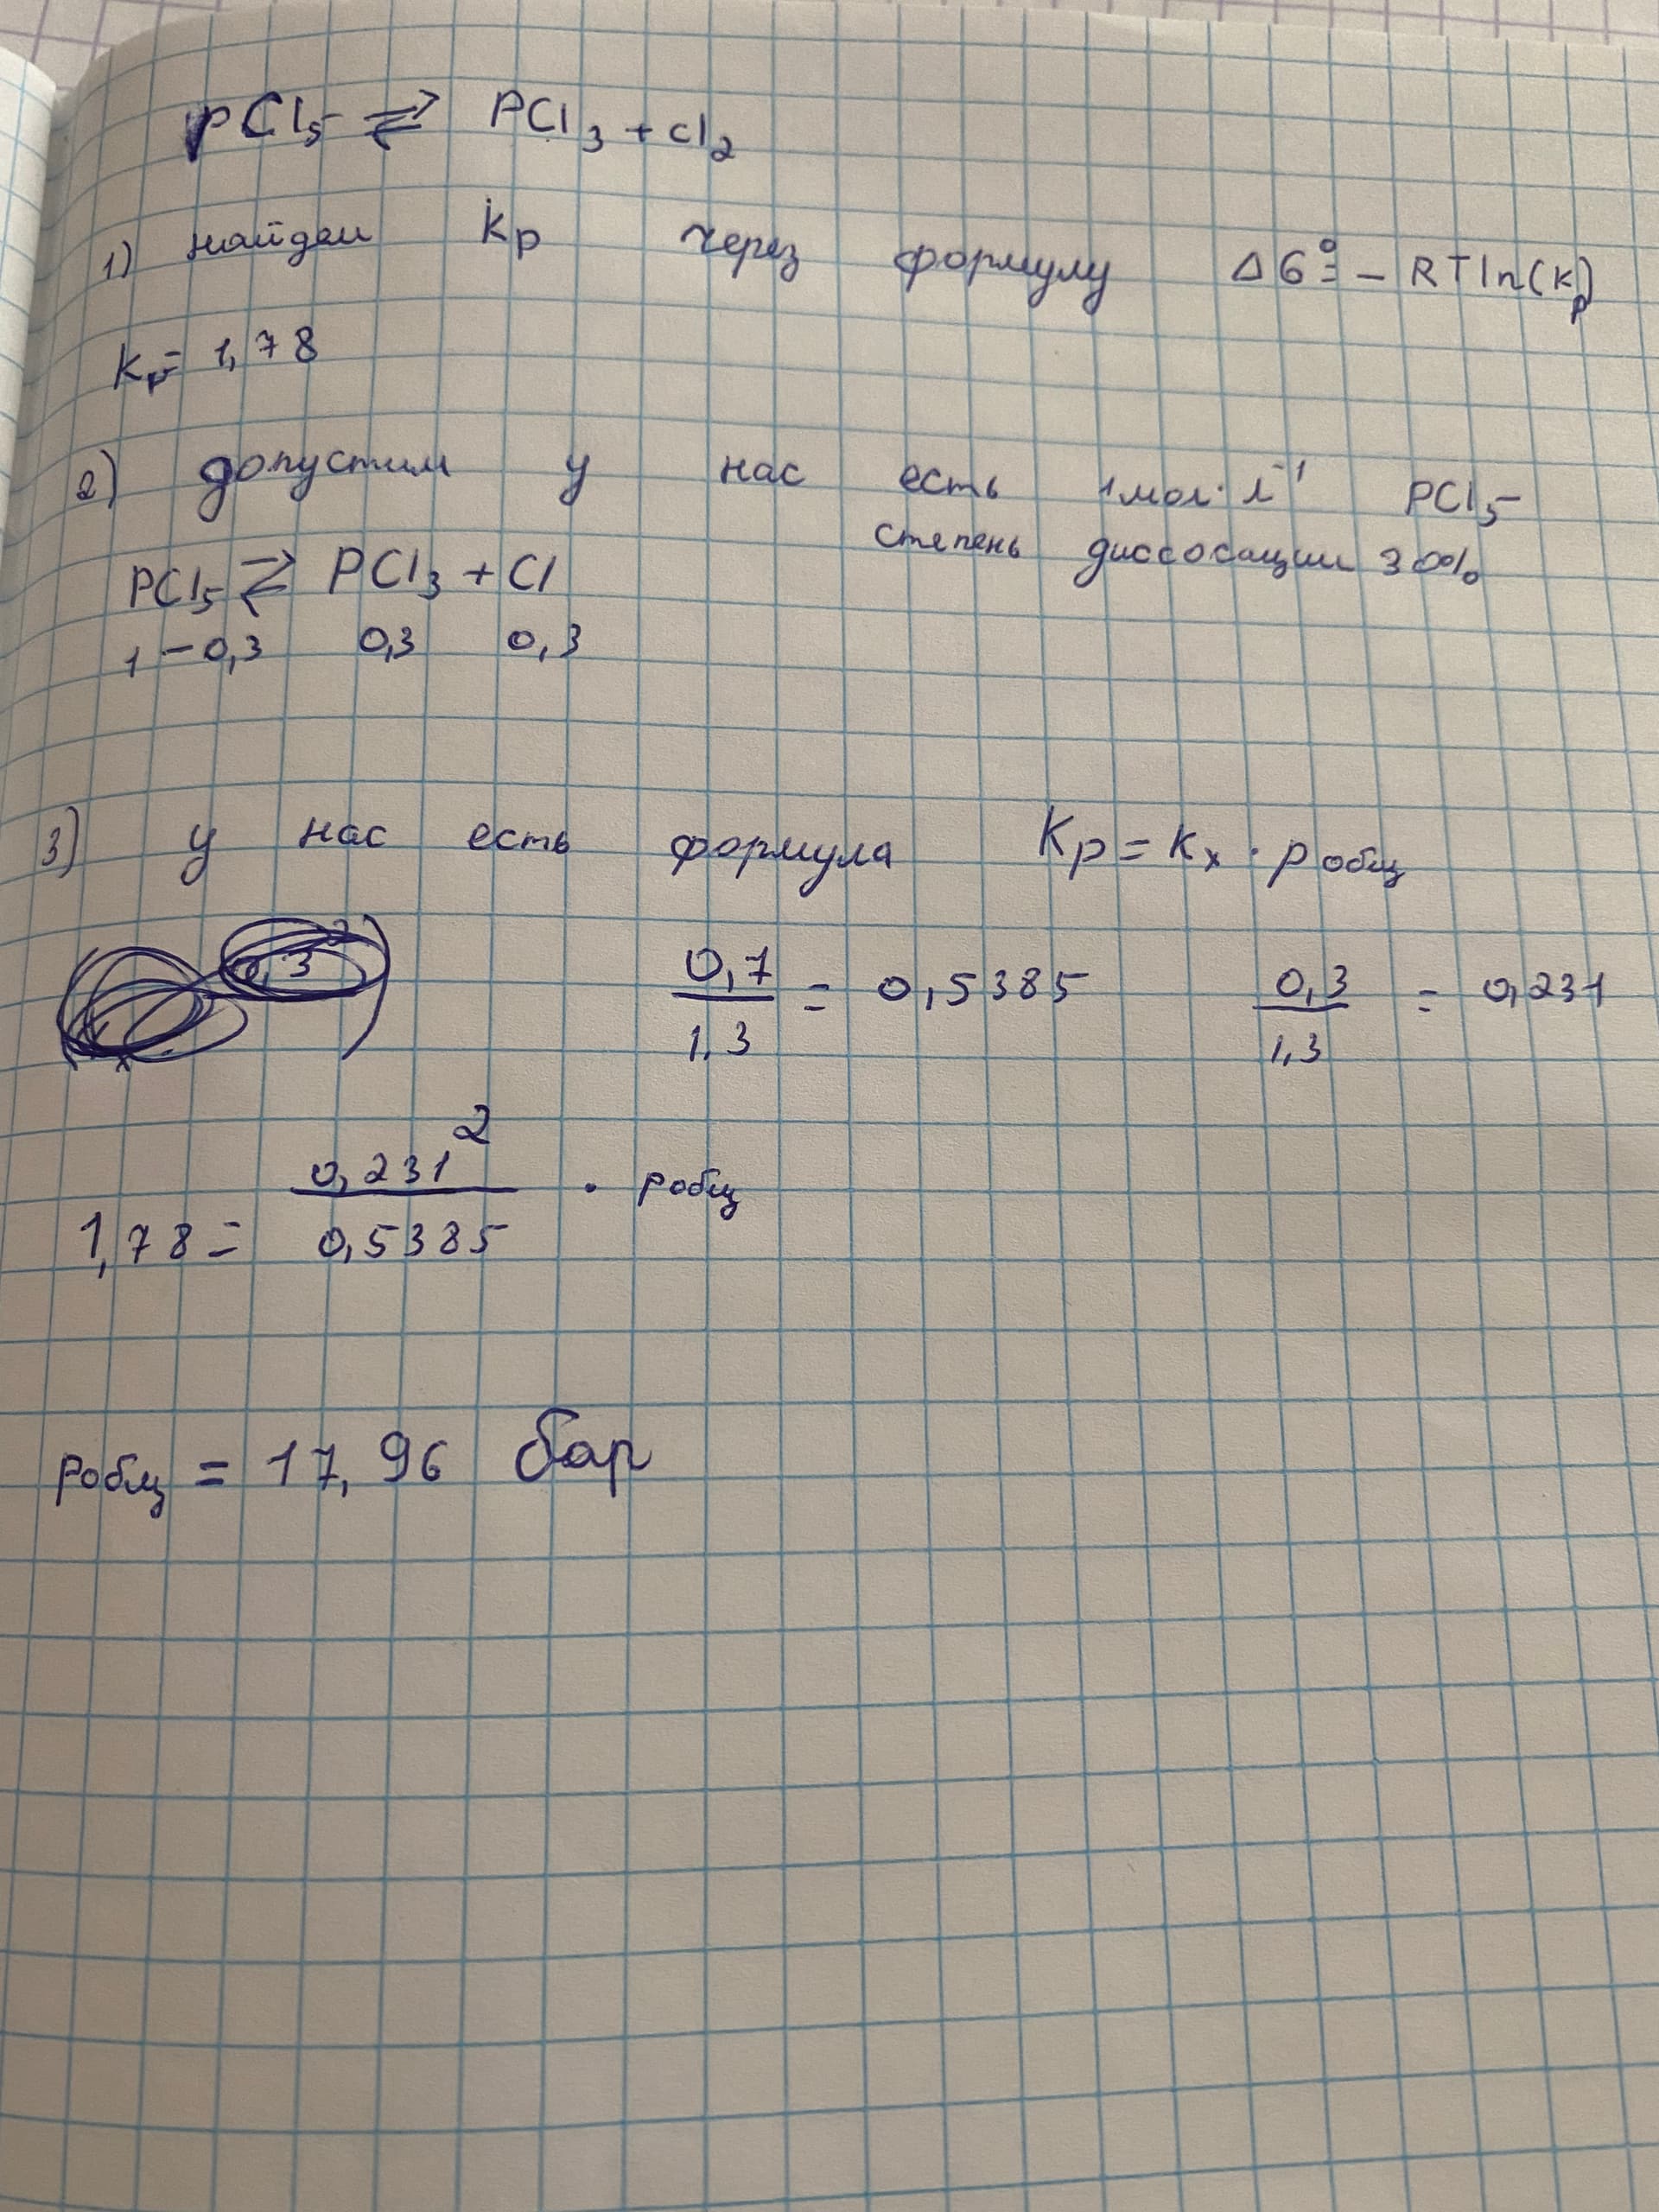 PCl₅ ⇄ PCl₃ + Cl₂
1) найдем Kp через формулу ΔG° = - RTln(Kp)
Kp = 1,78
2) допустим у нас есть 1 мол·л⁻¹ PCl₅
степень диссосации 30%
PCl₅ ⇄ PCl₃ + Cl
1 - 0,3 0,3 0,3
3) у нас есть формула Kp = Kx · p общ
0,7/1,3 = 0,5385 0,3/1,3 = 0,231
1,78 = 0,231²/0,5385 · pобщ
pобщ = 17,96 бар